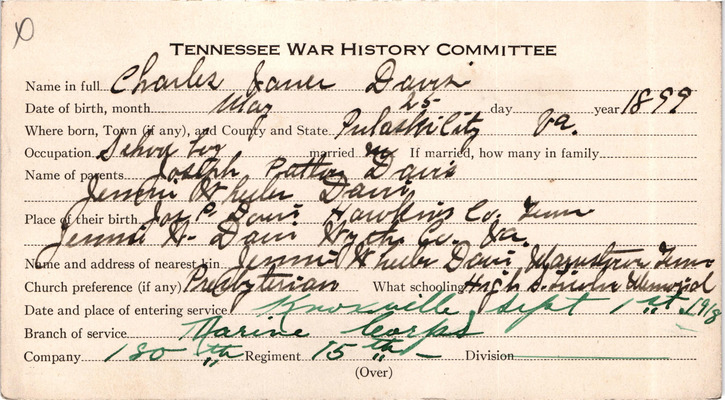 TENNESSEE WAR HISTORY COMMITTEE
Name in full Charles Davis
Date of birth, month May 25 day year 1899
Where born, Town (if any), and County and State Pulaski City Va.
Occupation School boy married no If married, how many in family
Name of parents Joseph Patton Davis
Jennie Wheeler Davis
Place of their birth Jos P. Davis Hawkins Co. Tenn
Jennie W. Davis Wythe Co. Va.
Name and address of nearest kin Jennie Wheeler Davis, Tenn
Church preference (if any) Presbyterian What schooling High S. Memorial
Date and place of entering service Knoxville Sept 1st 1918
Branch of service Marine Corps
Company 180 th Regiment 15 th Division
(Over)